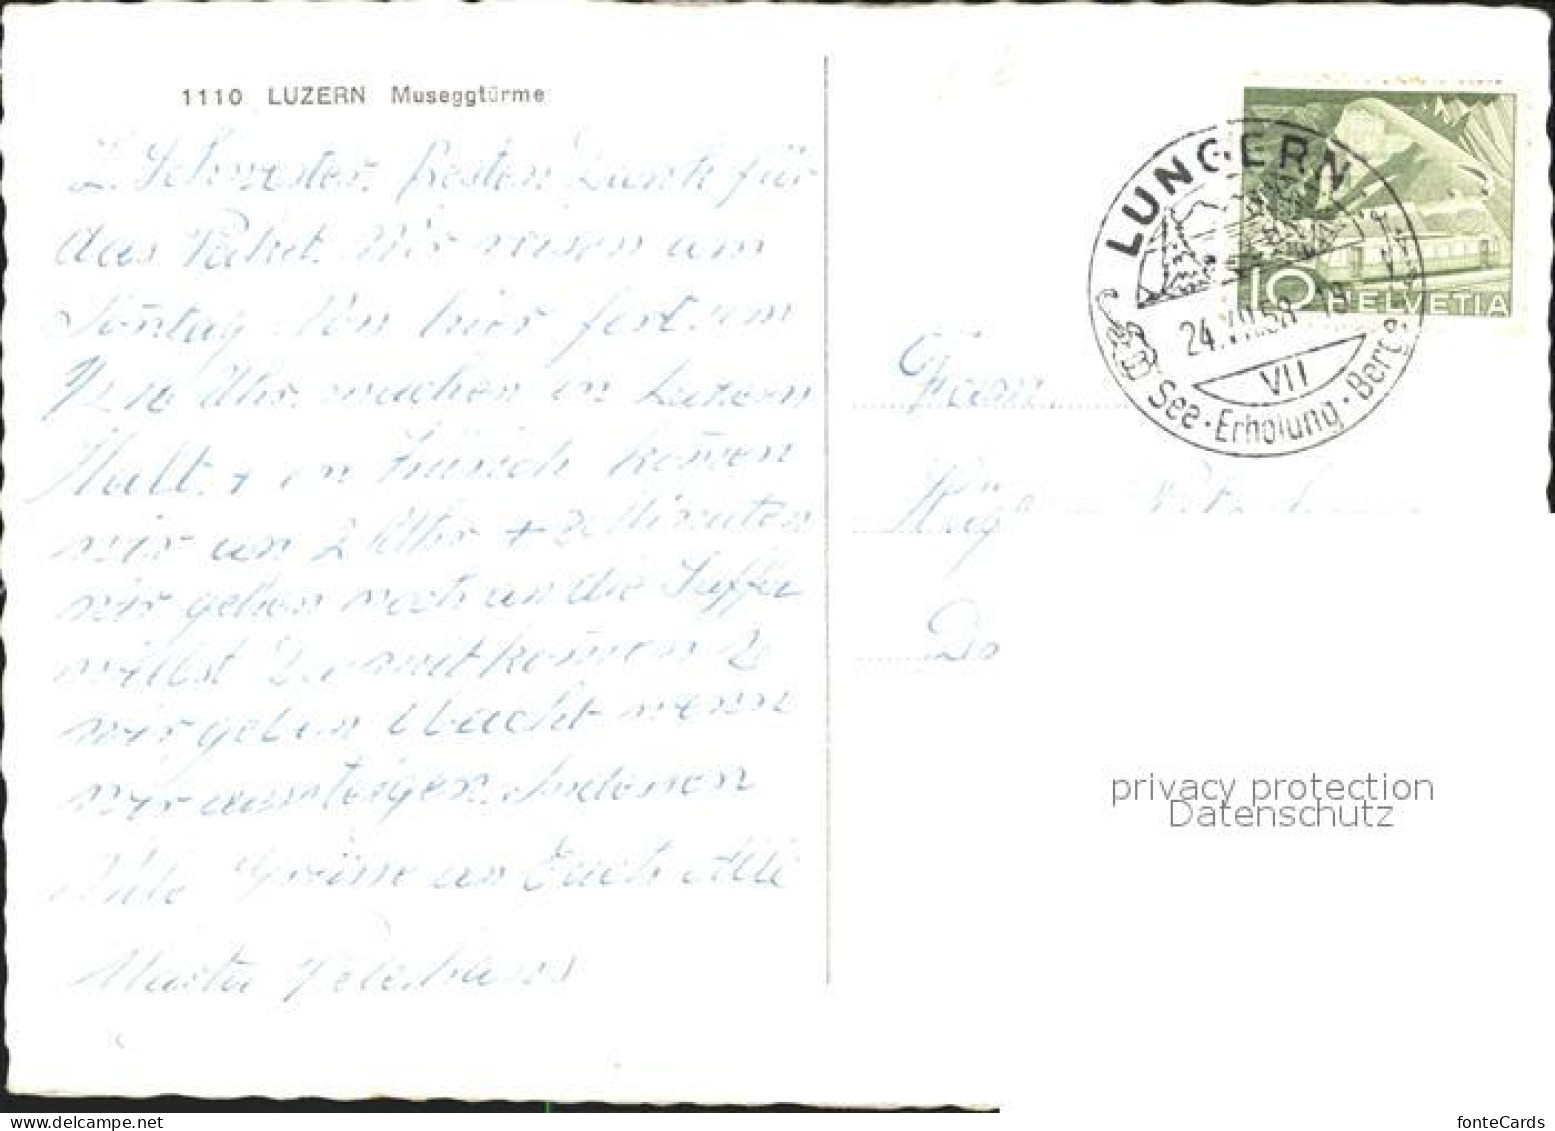 1110 LUZERN Museggtürme
L. Schwester. Besten Dank für
das Paket. Wir reisen am
Sontag von hier fort um
1/2 10 Uhr. machen in Luzern
Halt. + in Zürich kom̄en
wir an 2 Uhr + Minuten
wir gehen noch an die
willst Du mitkom̄en
wir geben Obacht wenn
wir aussteigen.
Grüsse an Euch Alle
LUNGERN
24.VII.58-18
VII
See·Erholung·Berge
10 HELVETIA
Fam.
privacy protection
Datenschutz
fonteCards